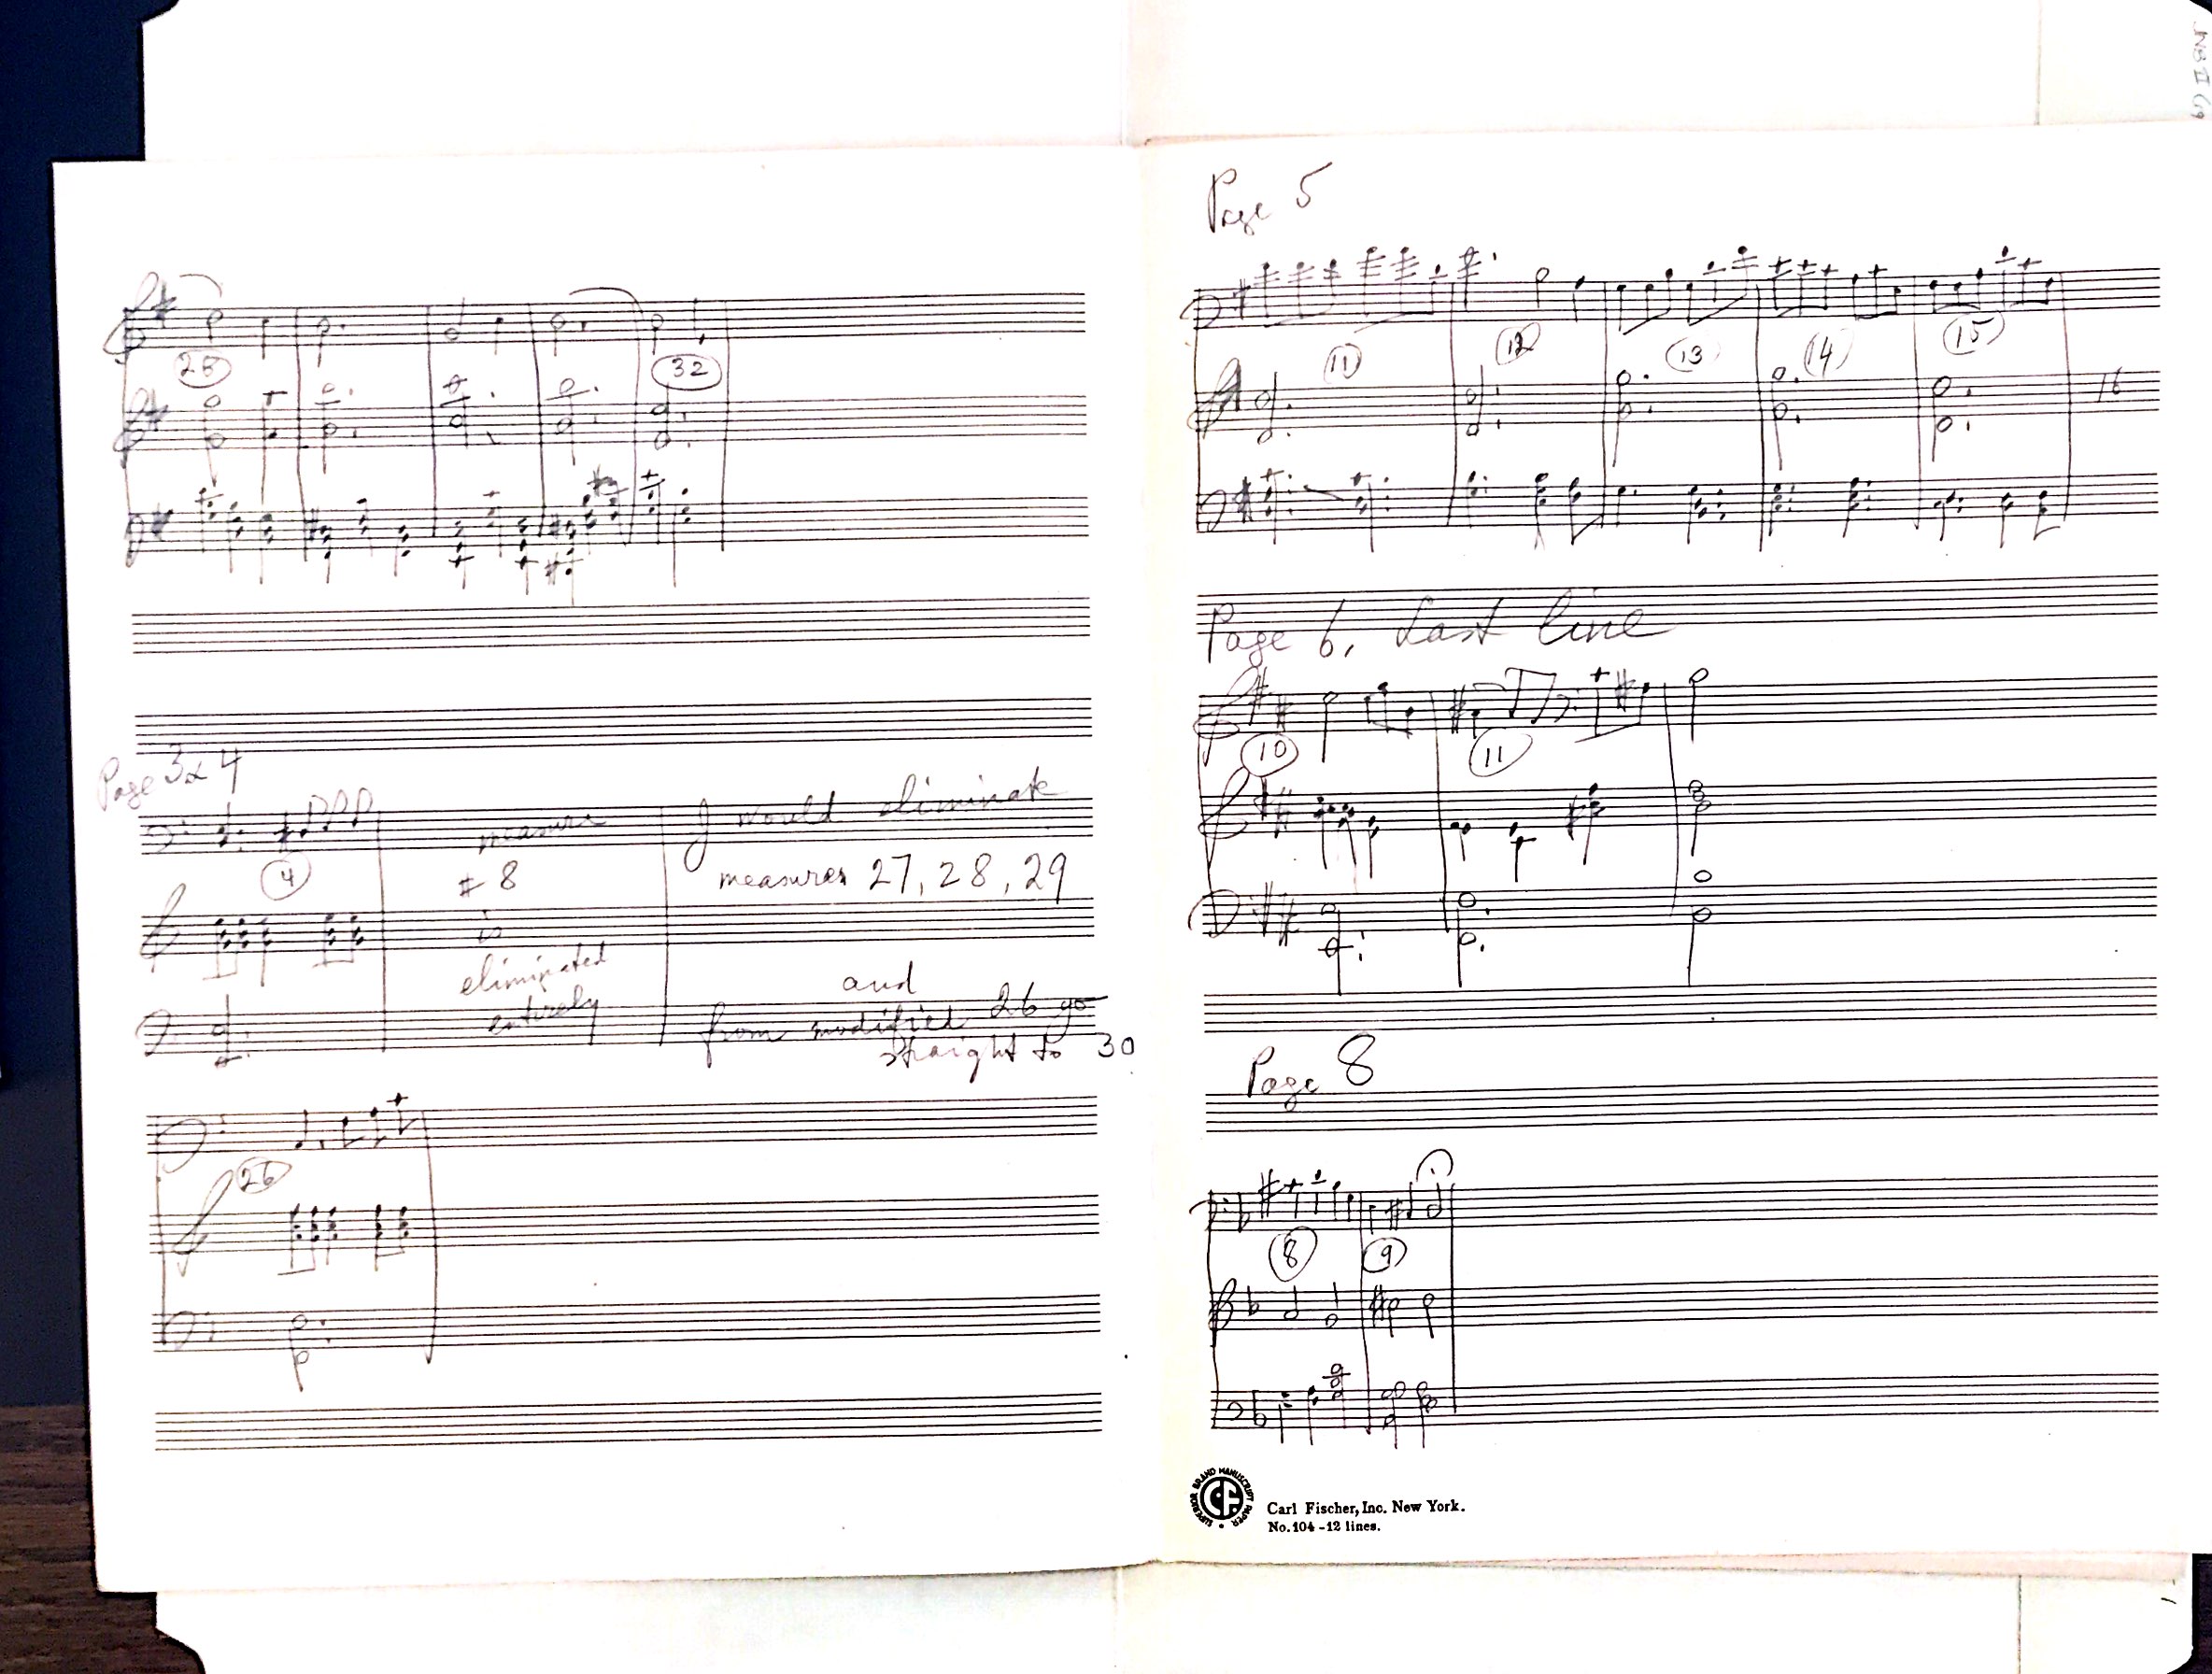 28
32
Page 3 & 4
4
measure
# 8
is
eliminated
entirely
I would eliminate
measures 27, 28, 29
and
from modified 26 go
straight to 30
26
Page 5
11
12
13
14
15
16
Page 6, Last line
10
11
Page 8
8
9
SUPERIOR BRAND MANUSCRIPT PAPER
CF
Carl Fischer, Inc. New York.
No. 104 - 12 lines.